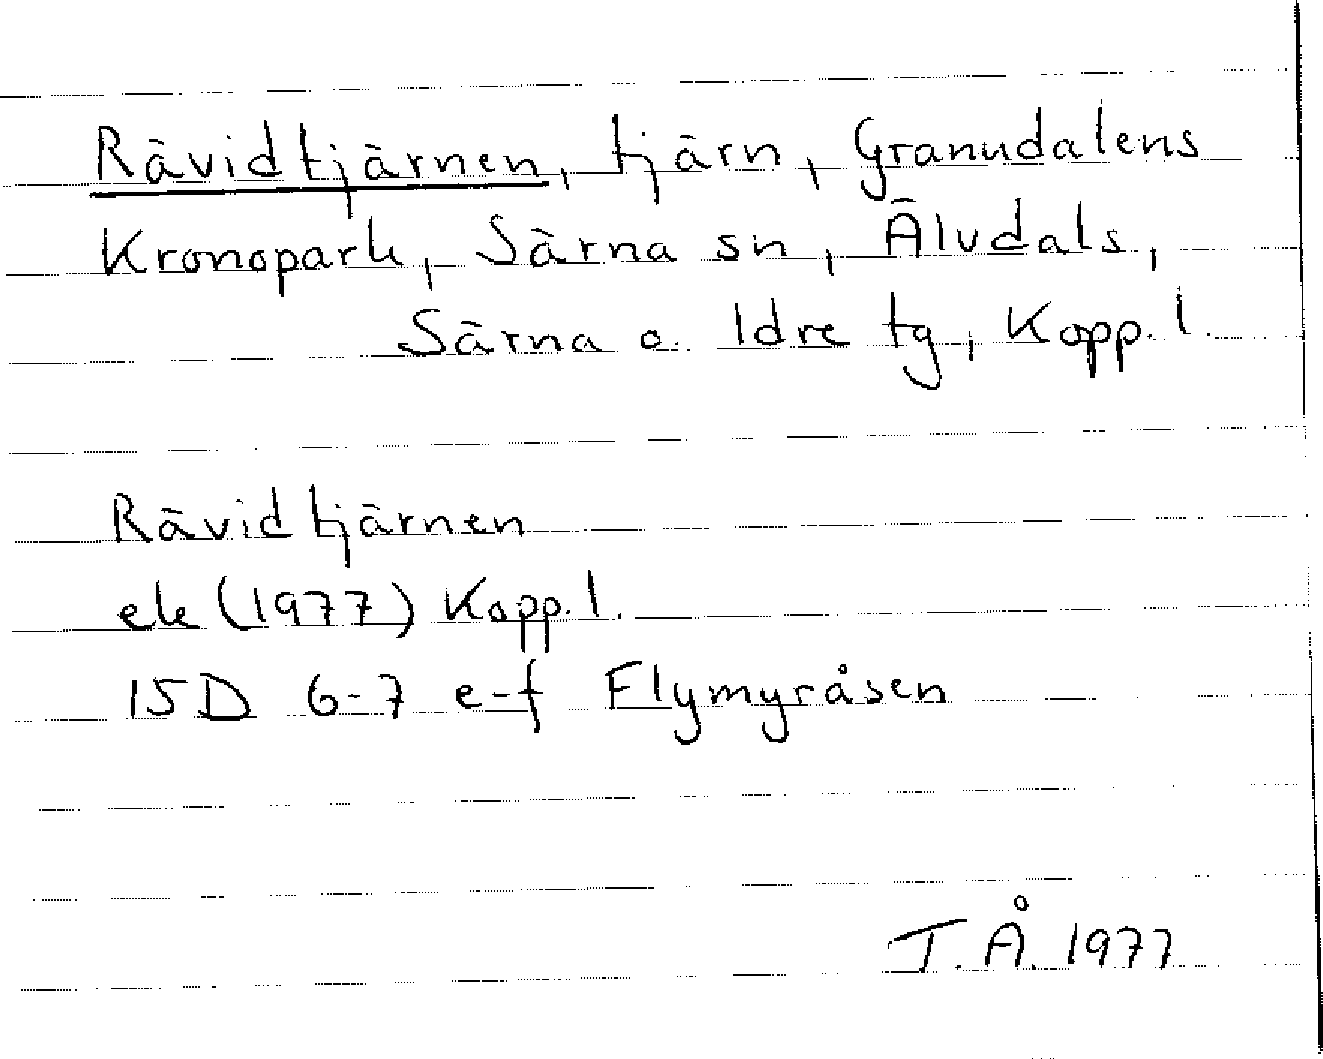 Rävidtjärnen, tjärn, Granudalens
Kronopark, Särna sn, Älvdals,
Särna o. Idre tg, Kopp. l.
Rävidtjärnen
ek (1977) Kopp. l.
15D 6-7 e-f Flymyråsen
T.Å. 1977